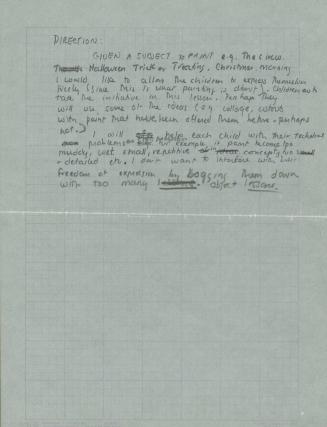 DIRECTION:
GIVEN A SUBJECT to PAINT e.g. The Circus.
Halloween Trick or Treating, Christmas Morning
I would like to allow the children to express themselves
freely (since this is what painting is about). Children can
take the initiative in this lesson. Perhaps they
will use some of the ideas (e.g. collage, colours
with paint that have been offered them before - perhaps
not.) I will help each child with their technical
problems for example, if paint becomes too
muddy, wet small, repetitive concepts, too
+ detailed etc. I don't want to interfere with their
freedom of expression by bogging them down
with too many object lessons.